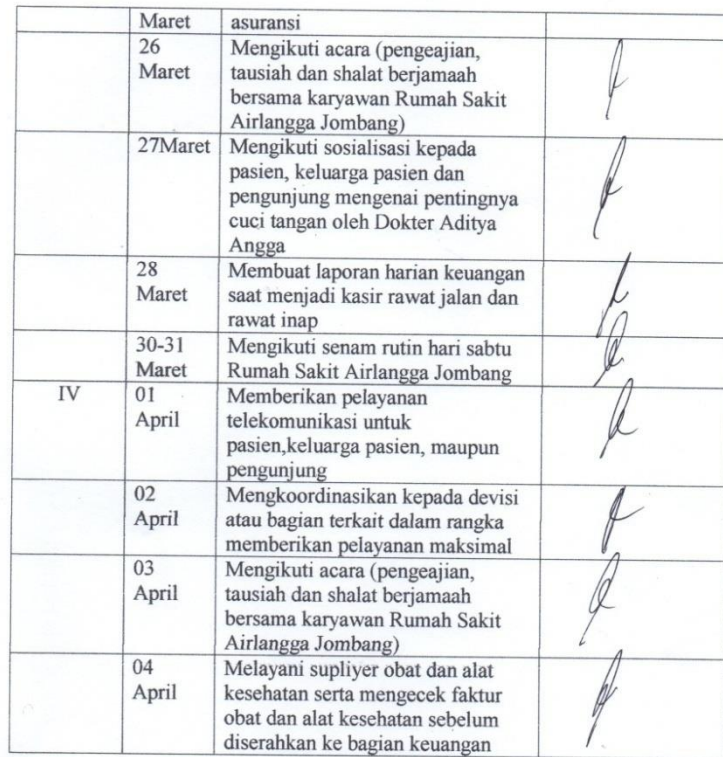 Maret asuransi
26 Mengikuti acara (pengeajian,
Maret tausiah dan shalat berjamaah
bersama karyawan Rumah Sakit
Airlangga Jombang)
27Maret Mengikuti sosialisasi kepada
pasien, keluarga pasien dan
pengunjung mengenai pentingnya
cuci tangan oleh Dokter Aditya
Angga
28 Membuat laporan harian keuangan
Maret saat menjadi kasir rawat jalan dan
rawat inap
30-31 Mengikuti senam rutin hari sabtu
Maret Rumah Sakit Airlangga Jombang
IV 01 Memberikan pelayanan
April telekomunikasi untuk
pasien,keluarga pasien, maupun
pengunjung
02 Mengkoordinasikan kepada devisi
April atau bagian terkait dalam rangka
memberikan pelayanan maksimal
03 Mengikuti acara (pengeajian,
April tausiah dan shalat berjamaah
bersama karyawan Rumah Sakit
Airlangga Jombang)
04 Melayani supliyer obat dan alat
April kesehatan serta mengecek faktur
obat dan alat kesehatan sebelum
diserahkan ke bagian keuangan